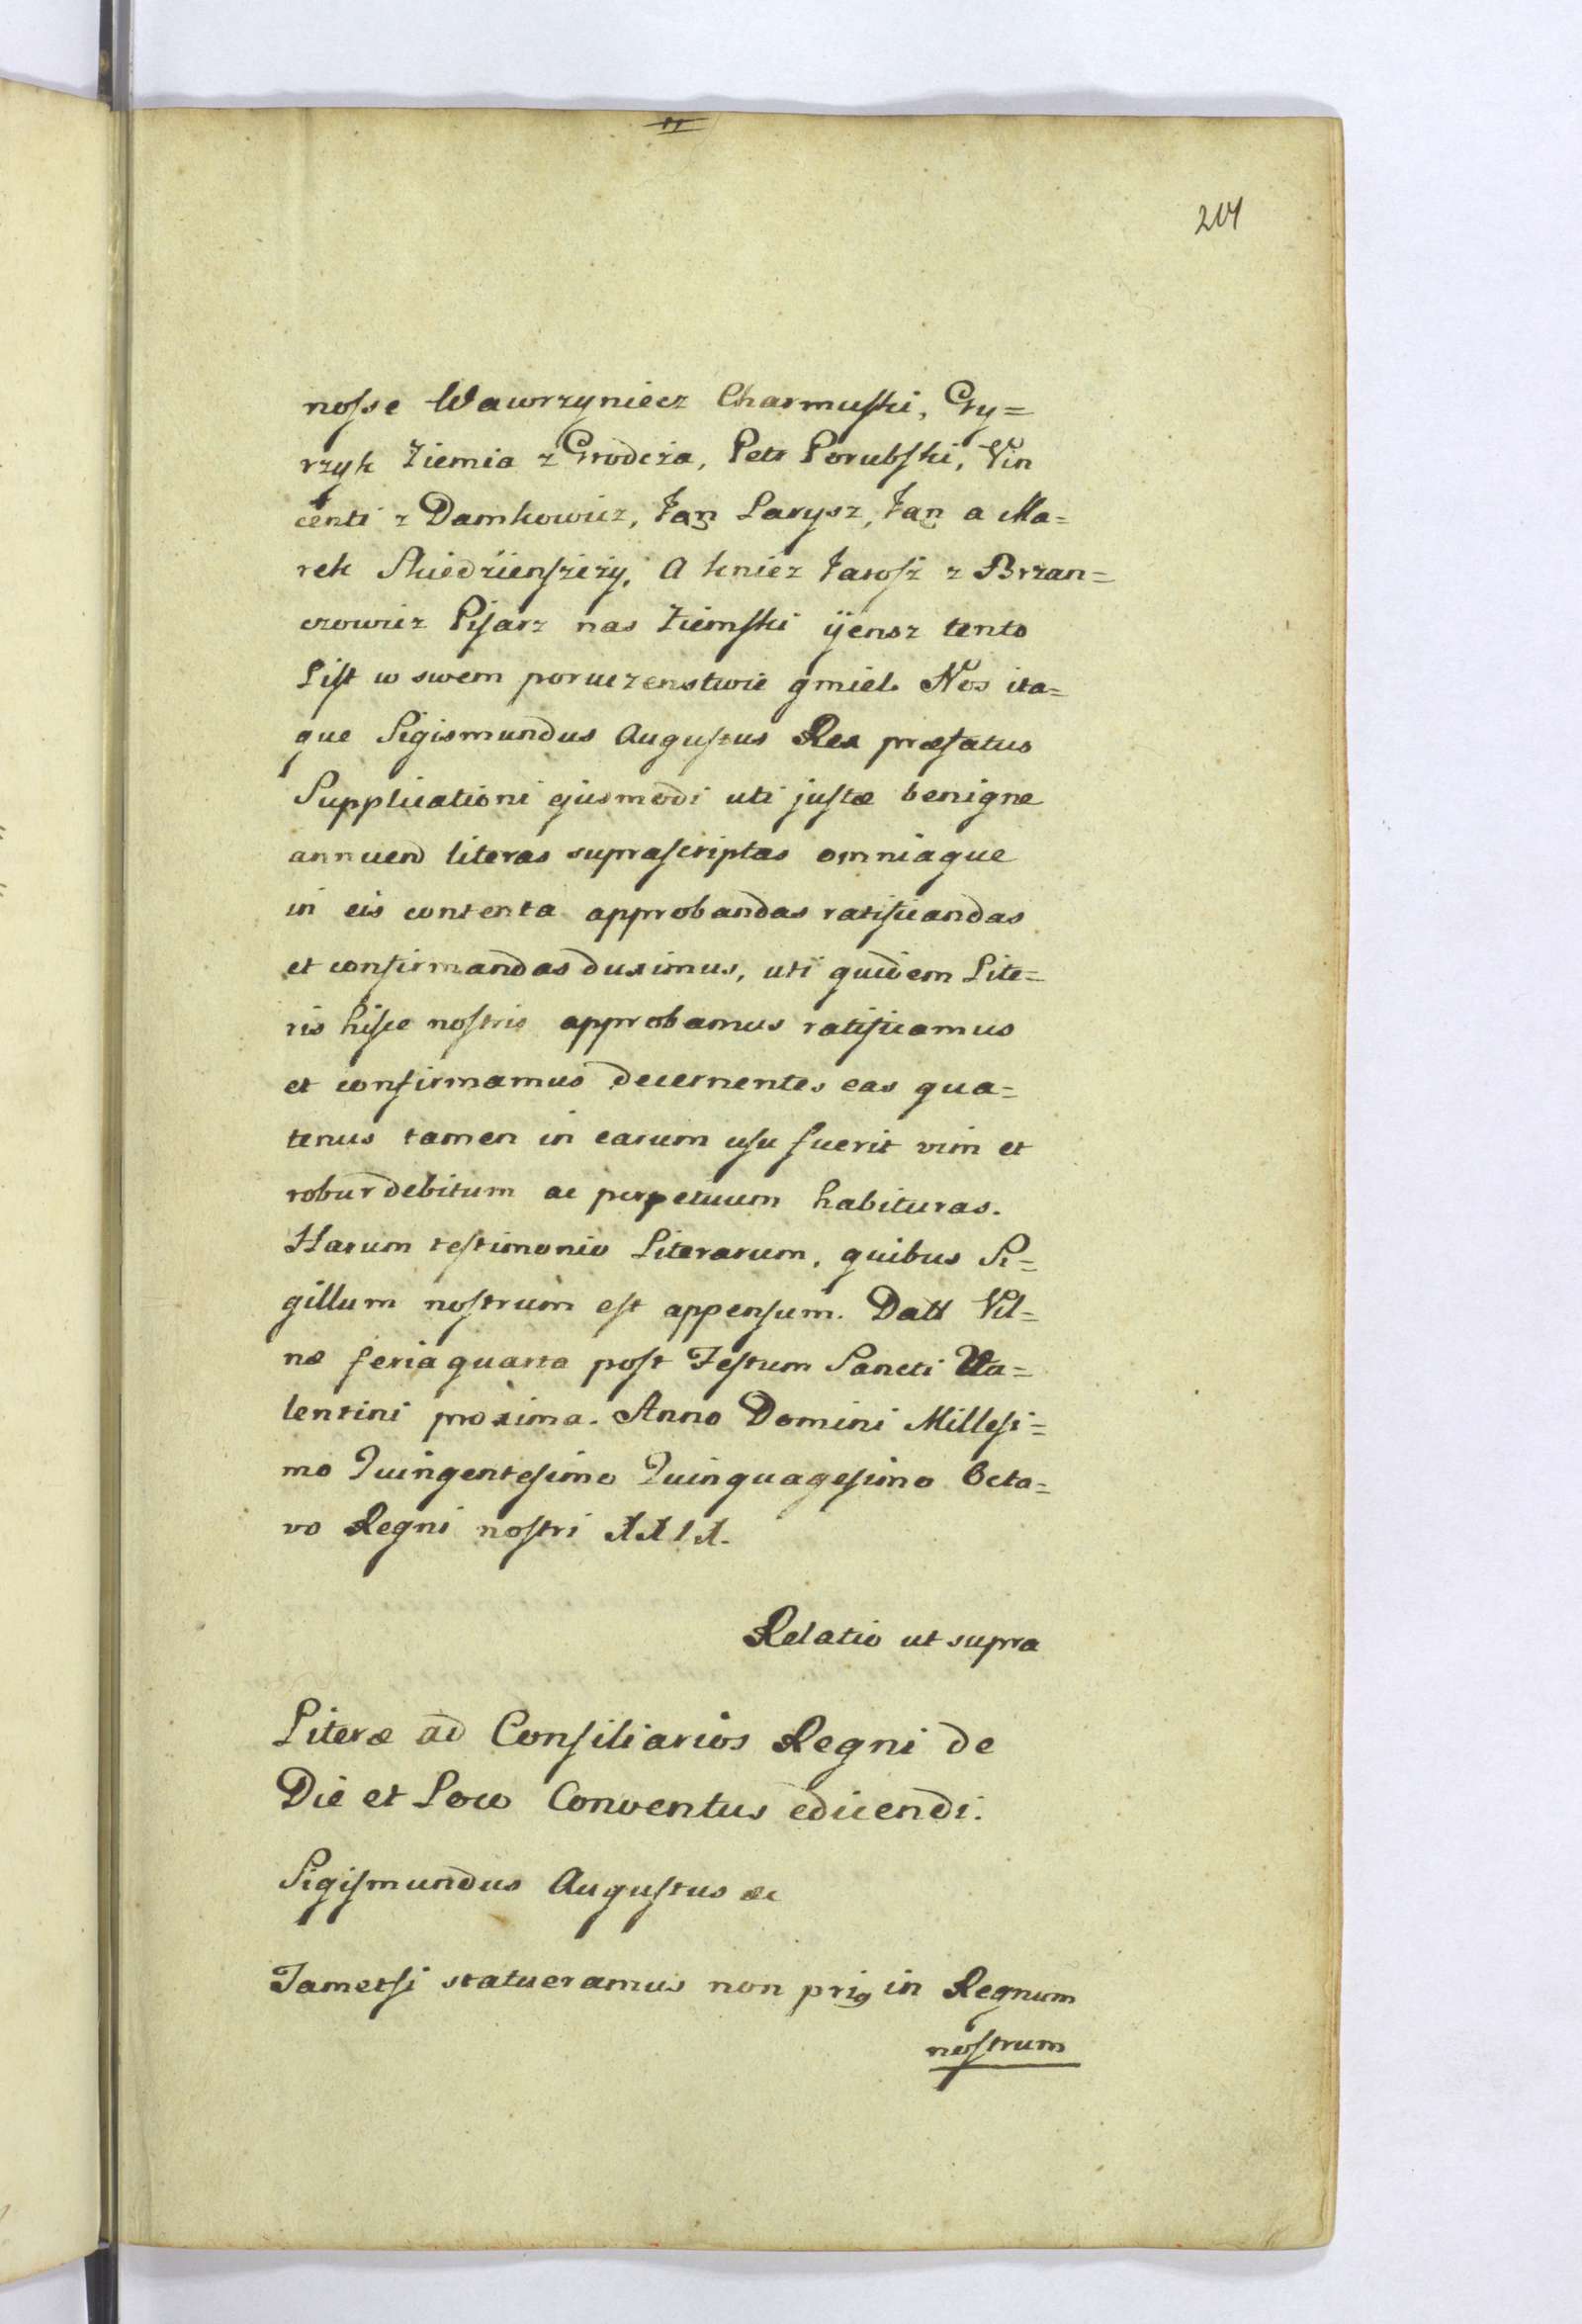 204
nosse Wawrzyniecz Charmuski, Gy=
rzyk Ziemia z Grodcza, Petr Porubski, Vin
centi z Damkowicz, Jan Larysz, Jan a Ma=
rek Skiedzienszczy, A kniez Jarosz z Brzan=
czowicz Pisarz nas Ziemski ÿensz tento
List w swem poruczenstwie gmiel. Nos ita=
que Sigismundus Augustus Rex præfatus
Supplicationi ejusmodi uti justæ benigne
annuend literas suprascriptas omniaque
in eis contenta approbandas ratificandas
et confirmandas duximus, uti quidem Lite=
ris hisce nostris approbamus ratificamus
et confirmamus decernentes eas qua=
tenus tamen in earum usu fuerit vim et
robur debitum ac perpetuum habituras.
Harum testimonio Literarum, quibus Si=
gillum nostrum est appensum. Datt Vil=
næ feria quarta post Festum Sancti Va=
lentini proxima. Anno Domini Millesi=
mo Quingentesimo Quinquagesimo Octa=
vo Regni nostri XXIX.
Relatio ut supra
Literæ ad Consiliarios Regni de
Die et Loco Conventus edicendi.
Sigismundus Augustus &c
Tametsi statueramus non prig in Regnum
nostrum